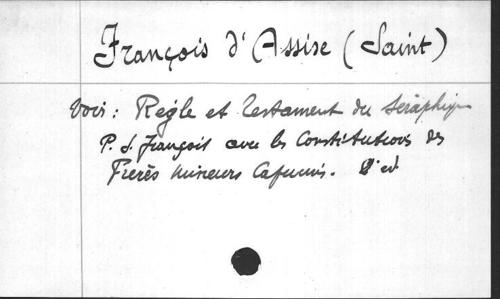 François d'Assise (Saint)
Voir : Règle et Testament du Séraphique
P. S. François avec les Constitutions des
Frères Mineurs Capucins. 2e ed